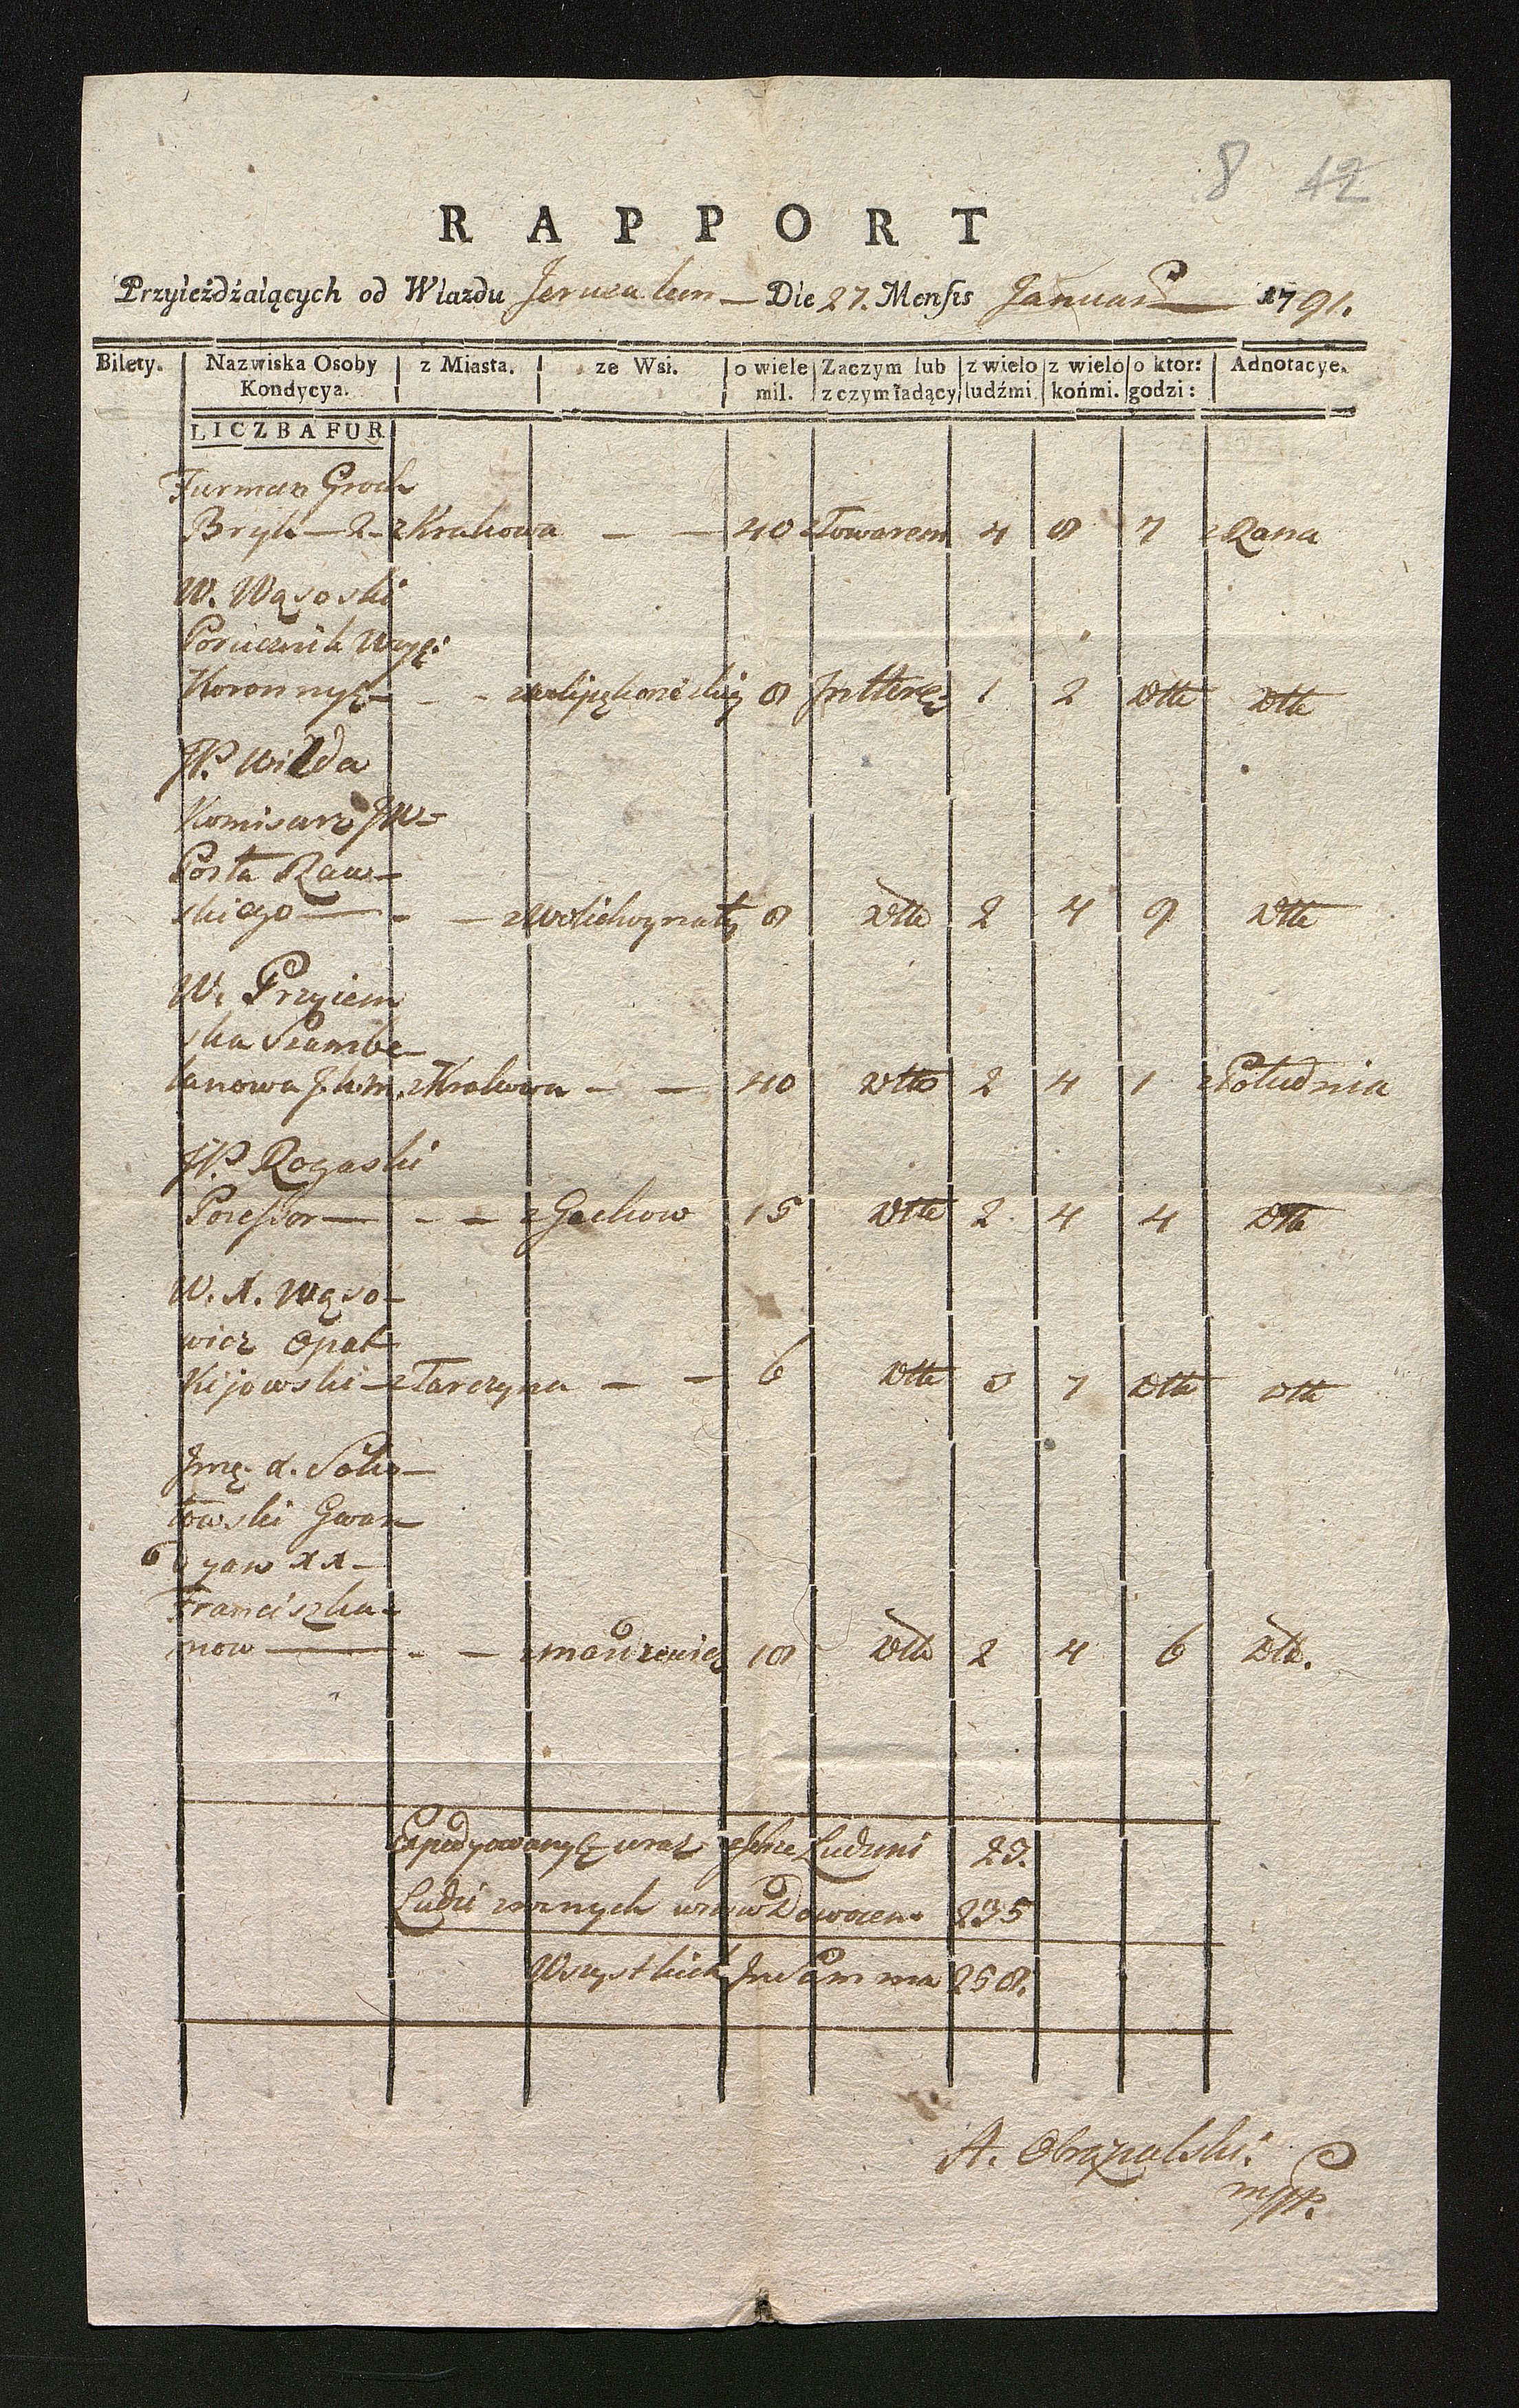 8 12
RAPPORT
Przyieżdżaiących od Wiazdu Jeruzalem — Die 27. Mensis Januarii 1791.
Bilety. Nazwiska Osoby Kondycya. z Miasta. ze Wsi. o wiele mil. Zaczym lub z czym iadący z wielo ludźmi z wielo końmi. o ktor: godzi: Adnotacye.
LICZBA FUR
Furman Groch
Bryk — 2 - z Krakowa — — 40 z Towarem 4 8 7 z Rana
W. Wąsoski
Porucznik
Koronnyę — - - 8 1 2 dtto dtto
JP. Wilda
Komisarz JW-
Posła Raw-
skiego — - — 8 dtto 2 4 9 dtto
W. Przyiem
ska Szambe-
lanowa z Krakowa - — 40 dtto 2 4 1 z Południa
JP. Rogaski
Possessor — - — z Gachow 15 dtto 2 4 4 dtto
W. X. Wąso-
wicz Opat
Kijowski - z Tarczyna — - 6 dtto 8 7 dtto dtto
Jmę. X. Soko-
towski Gwar-
dyan XX-
Franciszka-
now — - — 18 dtto 2 4 6 dtto.
Expedyowanyę wraz Ludzmi 23.
Ludzi roznych 235
Wszystkich In Summa 258.
A. Obrąpalski.
mpp.